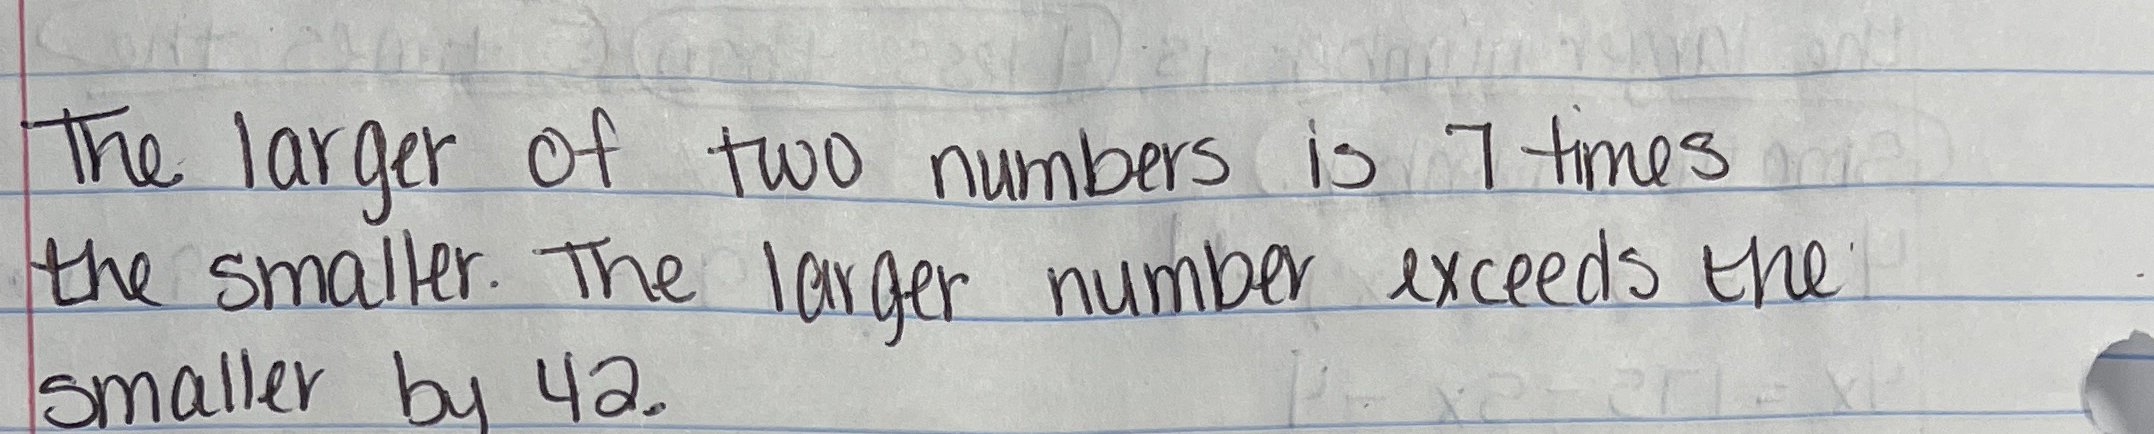 The larger of two numbers is 7 times
the smaller. The larger number exceeds the
smaller by 42.